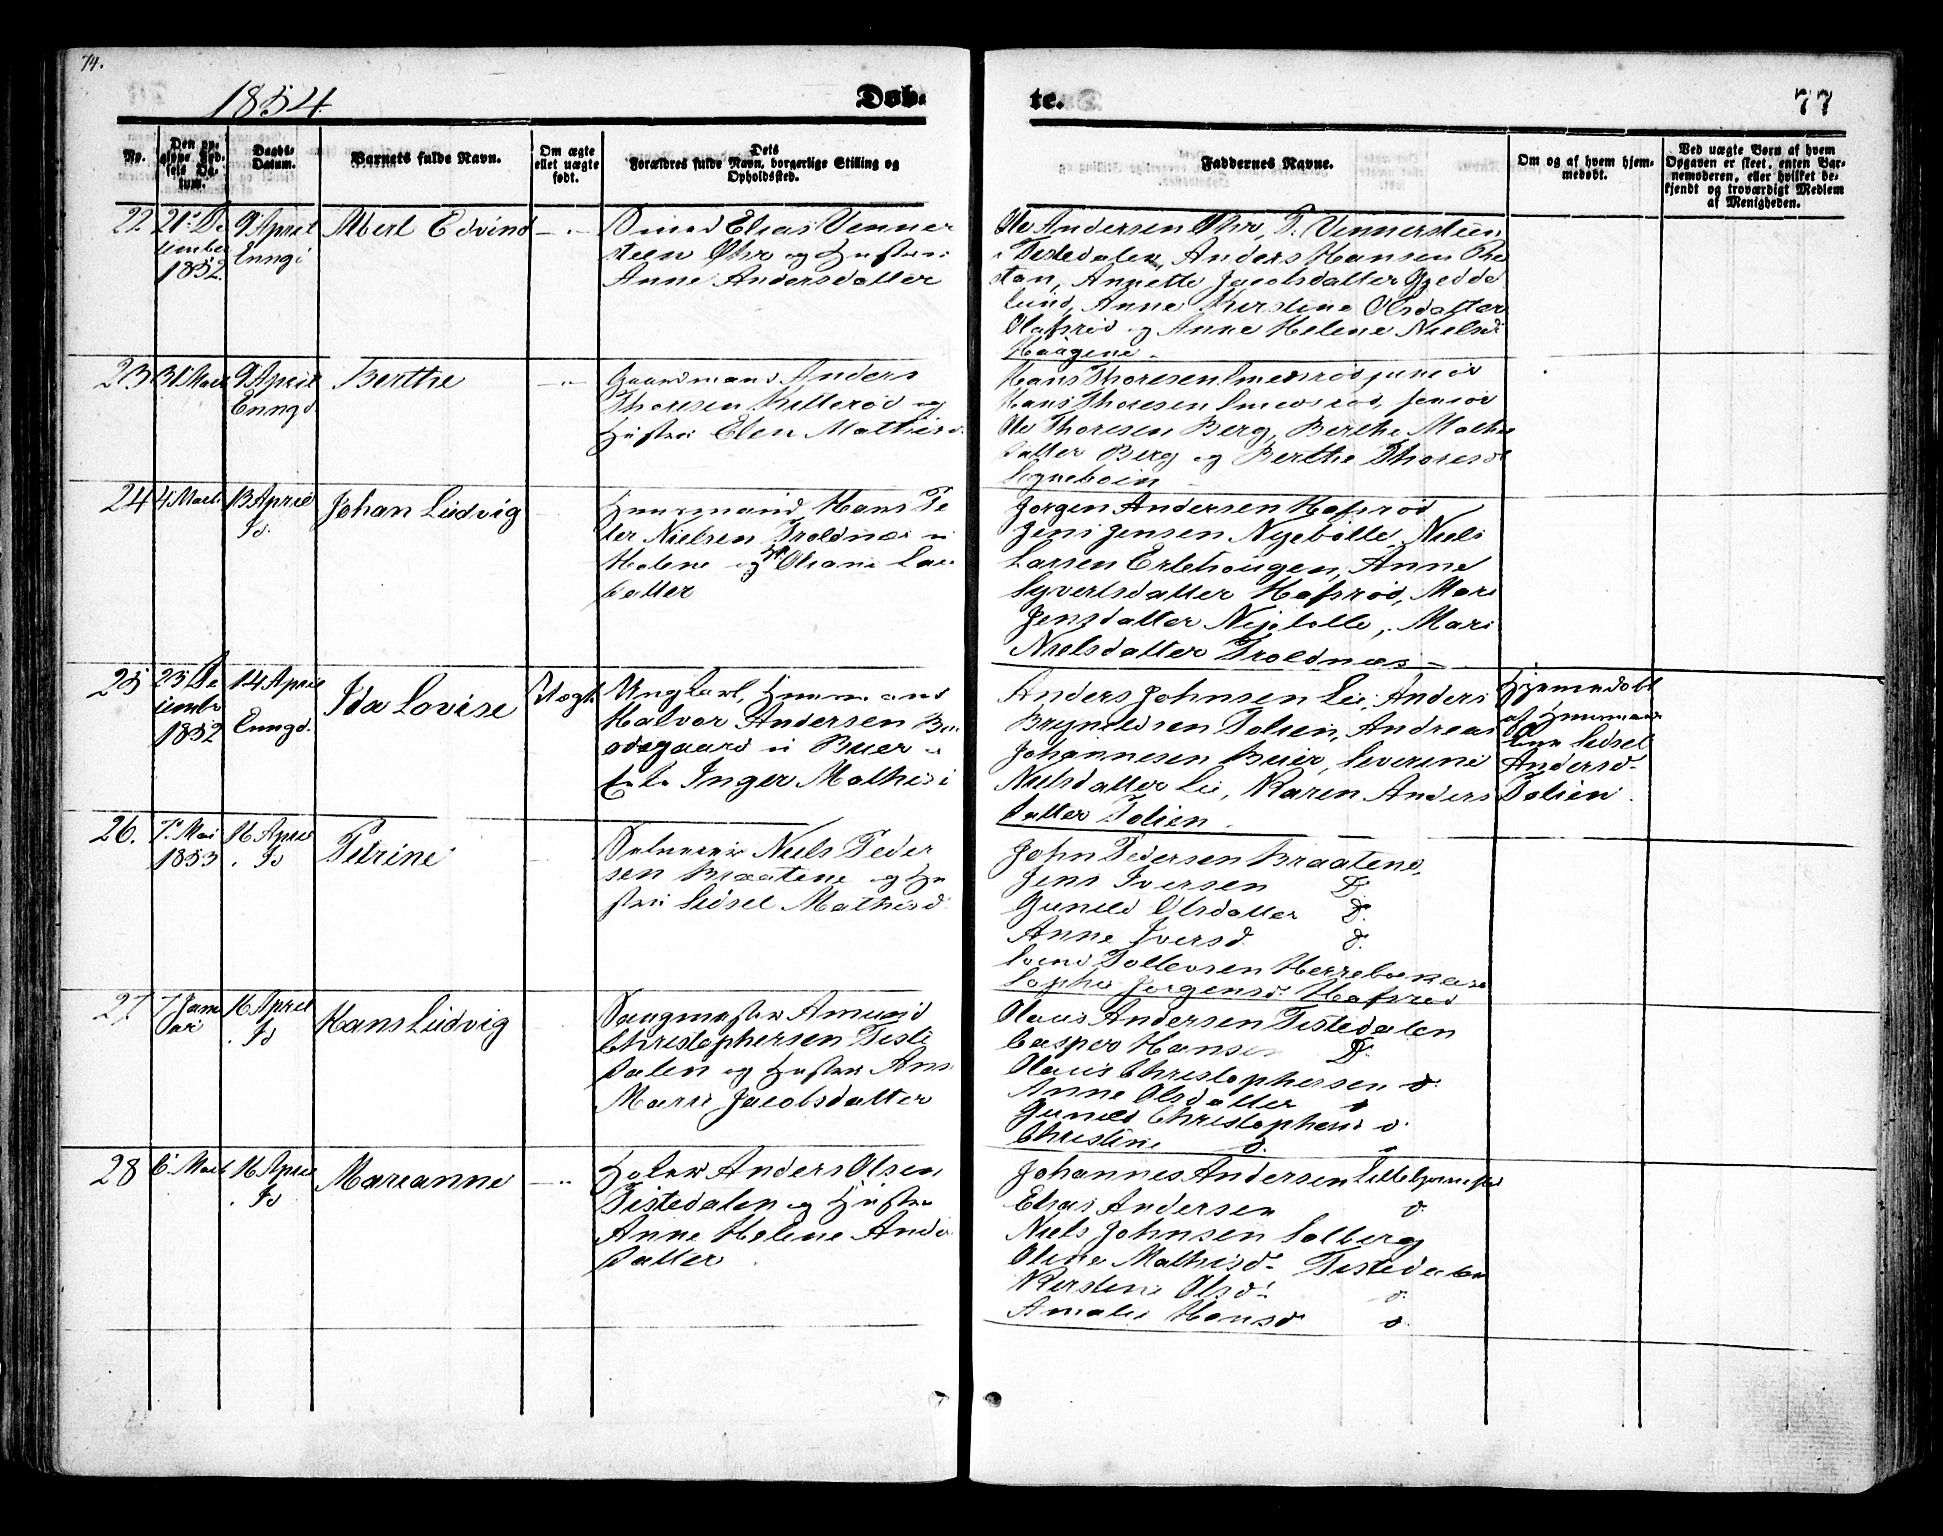 74.
1854.
Døb-
te.
77
No.
Den op-
givne Fød-
sels Da-
tum.
Daabs-
Datum.
Barnets fulde Navn.
Om ægte
ellet uægte
født.
Dets
Forældres fulde Navn, borgerlige Stilling og
Opholdssted.
Faddernes Navne.
Om og af hvem hjem-
medøbt.
Ved uægte Børn af hvem
Opgaven er skeet, enten Bar-
nemoderen, eller hvilket be-
kjendt og troværdigt Medlem
af Menigheden.
22
21de De
cember
1852
9 April
Enngd
Edvind
Elias Venner
steen Øhr og Hustru
Anne Andersdatter
Ole Andersen Øhr, P. Vennersteen
i Tistedalen, Anders Hansen
Annette Jacobsdatter Gjedde
lund, Anne Kirstine Olsdatter
Olafsrød og Anne Helene Nielsd
Haagene.
23
31 Marts
9 April
Enngd
Berthe
Gaardmand Anders
Thoresen Killerød og
Hustru Elen Mathisd.
Hans Thoresen junior
Hans Thoresen senior
Ole Thoresen Berg, Berthe Mathis
datter Berg og Berthe Thoresd
24
4 Marts
13 April
Id.
Johan Ludvig
Huusmand Hans Pe
ter Nielsen Troldnæs u
Holene og H. Oleane Lars
datter
Jørgen Andersen Hafsrød
Jens Jensen Nyebølle, Niels
Larsen Erlehougen, Anne
Syvertsdatter Hafsrød, Mari
Jensdatter Nyebølle, Mari
Nielsdatter Troldnæs
25
23 De
cembr
1852
14 April
Enngd.
Ida Lovise
Uægte
Ungkarl, Huusmand
Halvor Andersen
ødegaard u Buer og
Inger Mathisd
Anders Johnsen Lie, Anders
Brynildsen Folien, Andreas
Johannesen Buer, Severine
Nielsdatter Lie, Karen Anders
datter Folien.
Hjemmedøbt
af Huusmand
Sidsel
Andersd.
Folien.
26.
7de Mai
1853
16 April
Id
Petrine
Niels Peder
sen Braatene og Hu
stru Sidsel Mathisd
John Pedersen Braatene,
Jens Iversen D.
Gunild Olsdatter D.
Anne Iversd. D.
Svend Tollevsen Herrebrøkase
Sophie Jørgensd. Hafsrød
27.
7 Janu
ar
16 April
Id
Hans Ludvig
Saugmester Amund
Christophersen Tiste
dalen og Hustru Ane
Marie Jacobsdatter
Olaus Andersen Tistedalen
Casper Hansen D.
Olaus Christophersen D.
Anne Olsdatter D
Gunild Christophersd D.
Christine D. D
28
6 Marts
16 April
Id
Marianne
Anders Olsen
Tistedalen og Hustru
Anne Helene Anders
datter
Johannes Andersen
Elias Andersen D.
Niels Johnsen Solberg
Oline Mathisd. Tistedalen
Kirstine Olsd. D.
Amalie Hansd D.